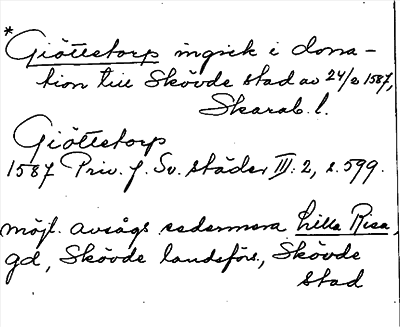 * Giöttetorp ingick i dona-
tion till Skövde stad av 24/2 1587,
Skarab. l.
Giöttetorp
1587 Priv. f. Sv. städer III: 2, s. 599.
möjl. avsågs sedermera Lilla Risa,
gd, Skövde landsförs., Skövde
stad